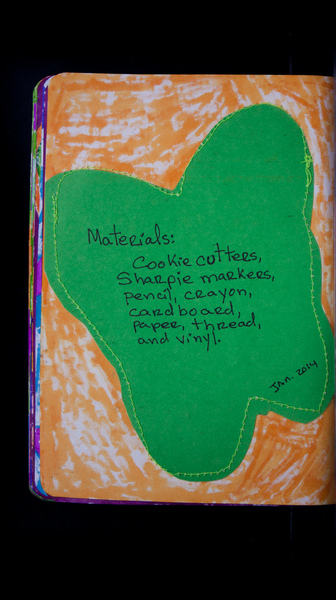 Materials:
Cookie cutters,
Sharpie markers,
pencil, crayon,
cardboard,
paper, thread,
and vinyl.
Jan. 2014